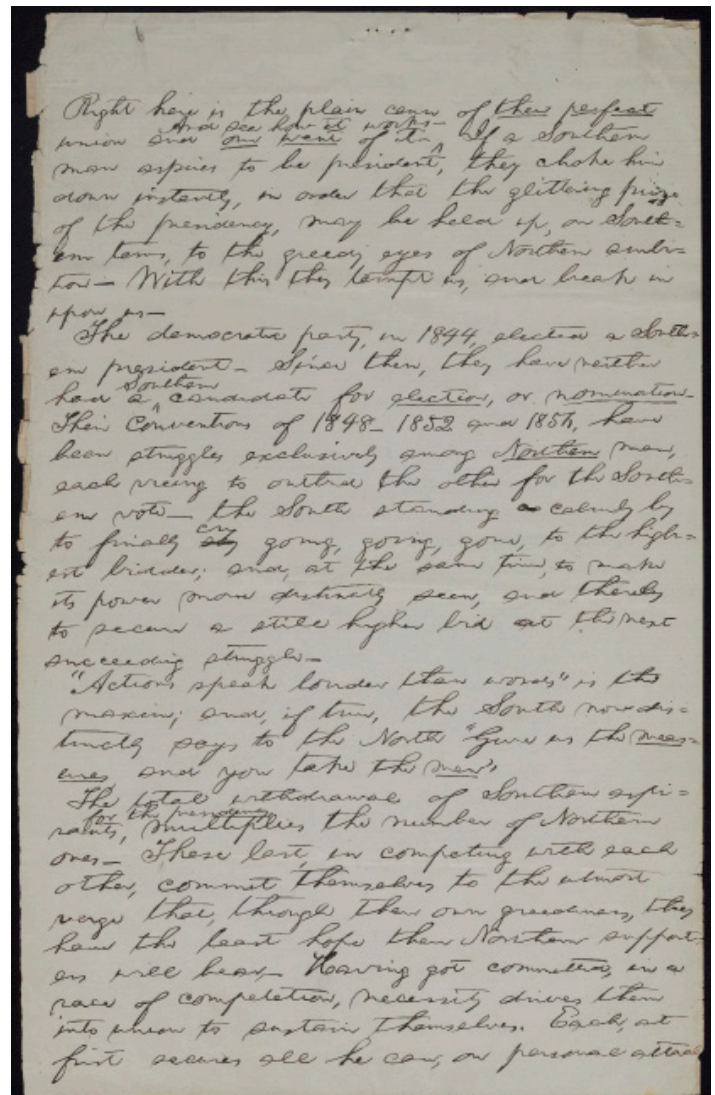 Right here is the plain cause of their perfect
And see how it works
union and our want of it. If a Southern
man aspires to be president, they choke him
down instantly, in order that the glittering prize
of the presidency, may be held up, on South=
ern terms, to the greedy eyes of Northern ambi=
tion— With this they tempt us, and break in
upon us—
The democratic party, in 1844, elected a South=
ern president— Since then, they have neither
Southern
had a candidate for election, or nomination.
Their Conventions of 1848— 1852 and 1856, have
been struggles exclusively among Northern men,
each vieing to outbid the other for the South=
ern vote— the South standing calmly by
cry
to finally going, going, gone, to the high=
est bidder; and, at the same time, to make
its power more distinctly seen, and thereby
to secure a still higher bid at the next
succeeding struggle—
"Actions speak louder than words" is the
maxim; and, if true, the South now dis=
tinctly says to the North "Give us the meas=
ures, and you take the men"
The total withdrawal of Southern aspi=
for the presidency
rants, multiplies the number of Northern
ones— These last, in competing with each
other, commit themselves to the utmost
verge that, through their own greediness, they
have the least hope their Northern support=
ers will bear— Having got committed, in a
race of competition, necessity drives them
into union to sustain themselves. Each, at
first secures all he can, on personal attac